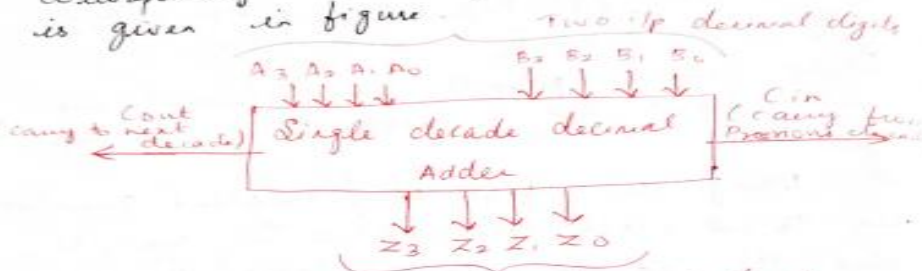 is given in figure.
Two i/p decimal digits
A3 A2 A1 A0 B3 B2 B1 B0
Cout
carry to next
decade)
Single decade decimal
Adder
Cin
(carry from
Previous
Z3 Z2 Z1 Z0